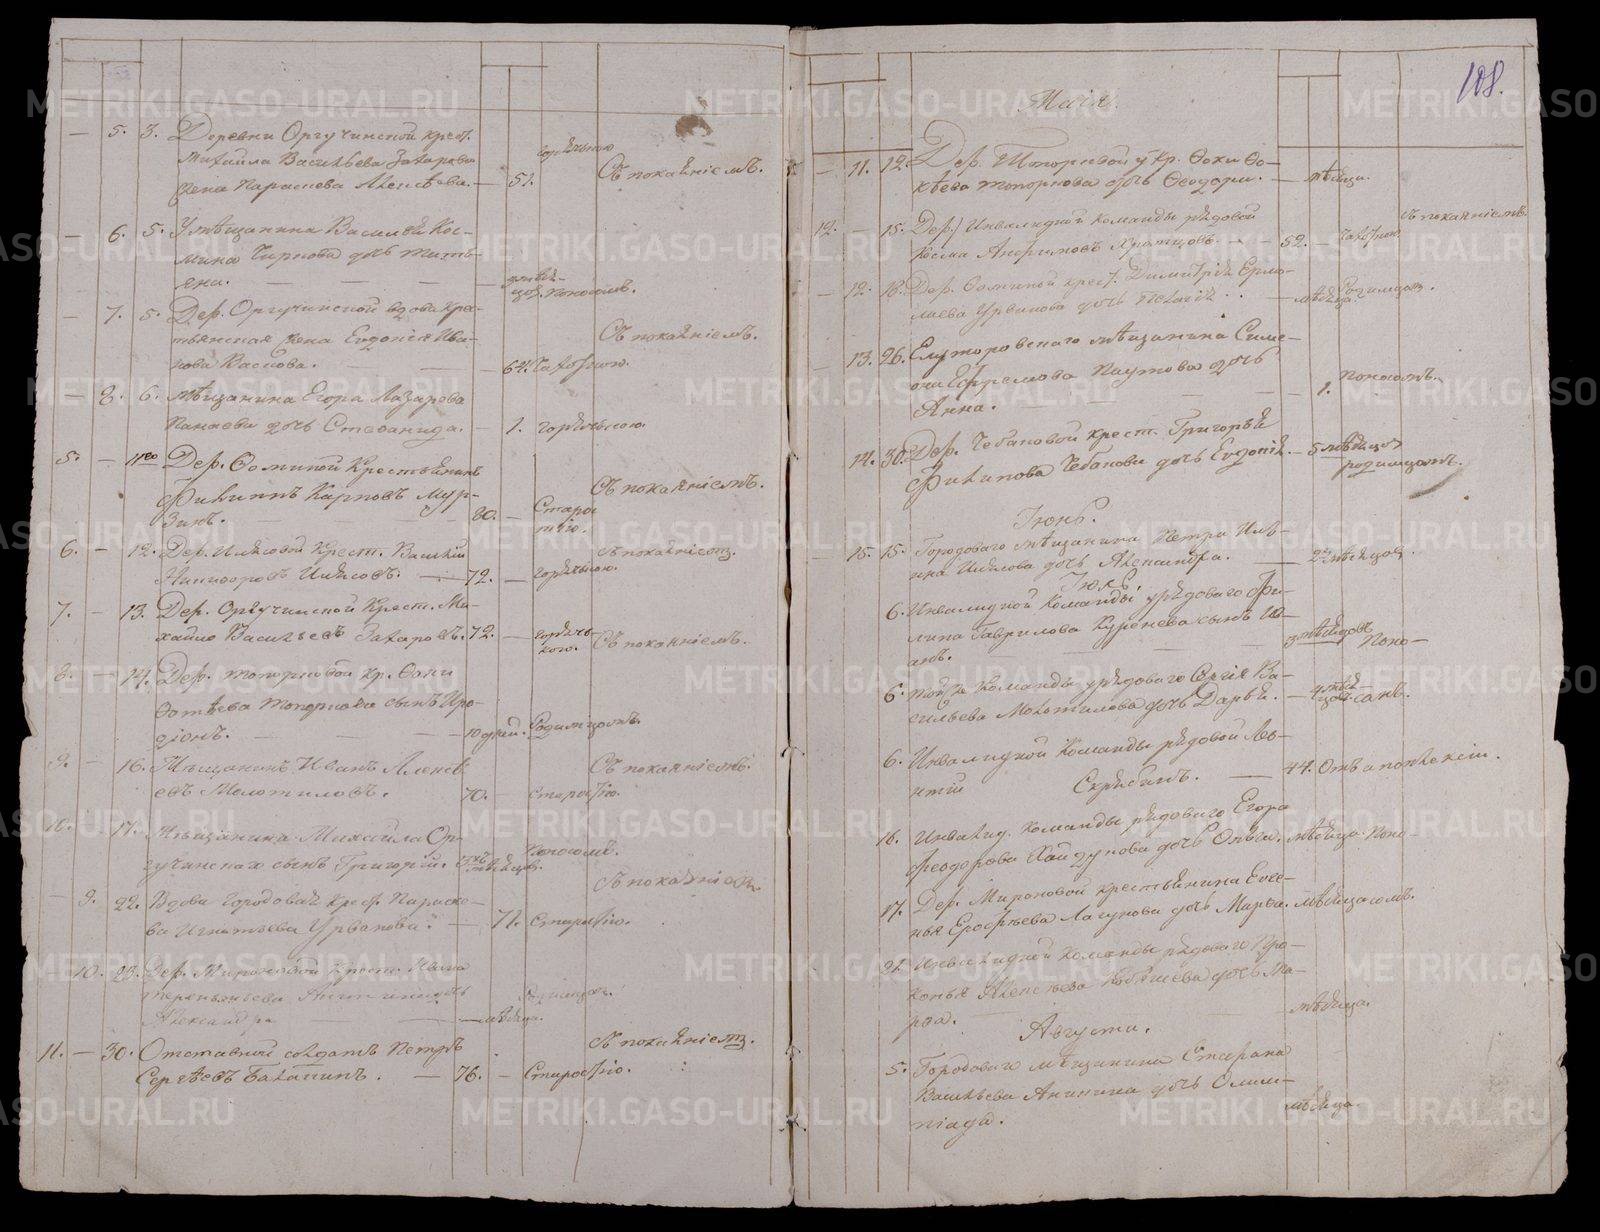 — 5. 3. Деревни Оргучинской крест.
Михайла Васильева Захарова
жена Параскева Алексѣева. — 51. горячкою Съ покаяніемъ.
— 6. 5. У мѣщанина Василья Кос-
мина дочь Тать-
яна. — поносомъ.
— 7. 5. Дер. Оргучинской вдова крес-
тьянская жена Евдокія Ива-
нова — 64. чахоткою. Съ покаяніемъ.
— 8. 6. мѣщанина Егора Лазарева
Панаева дочь Стефанида. — 1. горячкою.
5. — 11го Дер. Фоминой Крестьянинъ
Филиппъ Карповъ Мур-
зинъ. — 80. — Старос-
тію. Съ покаяніемъ.
6. — 12. Дер. Крест. Василій
Никифоровъ — 72. — горячкою. Съ покаяніемъ.
7. — 13. Дер. Оргучинской Крест. Ми-
хайло Васильевъ Захаровъ. 72. — горячь-
кою. Съ покаяніемъ.
8. — 14. Дер. Топорковой Кр. Фоки
Фотѣева Топоркова сынъ Иро-
діонъ. — 10 дней. Родимцомъ.
9. — 16. Мѣщанинъ Иванъ Алексѣ-
евъ Молотиловъ. 70. — старостію. Съ покаяніемъ.
10. — 17. Мѣщанина Михайла Ор-
гучинскаго сынъ Григорій. мѣсяцов. Поносомъ.
— 9. 22. Вдова городовая крест. Параске-
ва Игнатьева Урванова. — 71. Старостію. Съ покаяніем
— 10. 23. Дер. Мироновой Крест. Ивана
Терентьева дочь
Александра — мѣсяца. Родимцом.
11. — 30. Отставной солдатъ Петръ
Сергѣевъ Балакинъ. — 76. — Старостію. Съ покаяніемъ.
108.
Маія.
— 11. 12. Дер. Топорковой у Кр. Фоки Фо-
тѣева Топоркова дочь Феодора. — мѣсяца.
12. — 15. Дер. Инвалидной команды рядовой
Косма — 52. — Чахоткою. Съ покаяніемъ
— 12. 18. Дер. Фоминой крест. Димитрія Ермо-
лаева Урванова дочь Пелагія. — мѣсяца. Родимцом.
— 13. 26. Елуторовскаго мѣщанина Симе-
она Ефремова Паутова дочь
Анна. — 1. поносомъ.
14. 30. Дер. Чебаковой крест. Григорья
Филипова Чебакова дочь Евдокія. — 5 мѣсяцов
родимцомъ.
Іюнь.
15. 15. Городоваго мѣщанина Петра Иль-
ина дочь Александра. — 2 мѣсяцов.
Іюль.
6. Инвалидной Команды рядоваго Фи-
липа Гаврилова Куренева сынъ Ив-
анъ. — 3 мѣсяцовъ Поно-
6. той же Команды рядоваго Сергія Ва-
сильева Молотилова дочь Дарья. — 4 мѣся-
цов сомъ.
6. Инвалидной Команды рядовой Ле-
онтій Скрябинъ. — 44. Отъ апоплексіи.
16. Инвалид. команды рядоваго Егора
Феодорова Хайдукова дочь Ольга. мѣсяца Поно-
17. Дер. Мироновой крестьянина Евсе-
нья Ерофѣева Лагунова дочь Марѳа. мѣсяца сомъ.
21. Инвалидной команды рядоваго Про-
копья Алексѣева дочь Ма-
рѳа. — мѣсяца.
Августа.
5. Городоваго мѣщанина Стефана
Васильева Аникина дочь Олим-
піада. мѣсяца